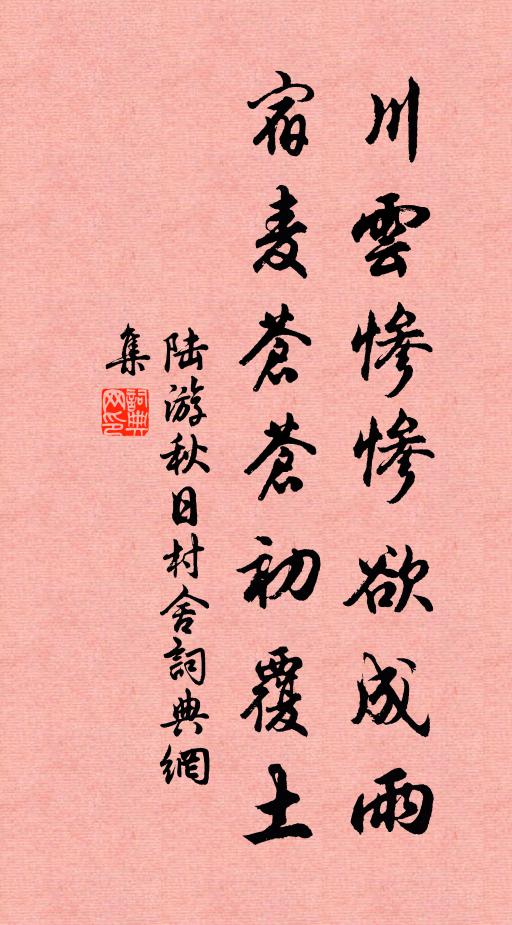 川雲慘慘欲成雨
宿麦蒼蒼初覆土
陆游秋日村舍詞典網
集
詞典
网印